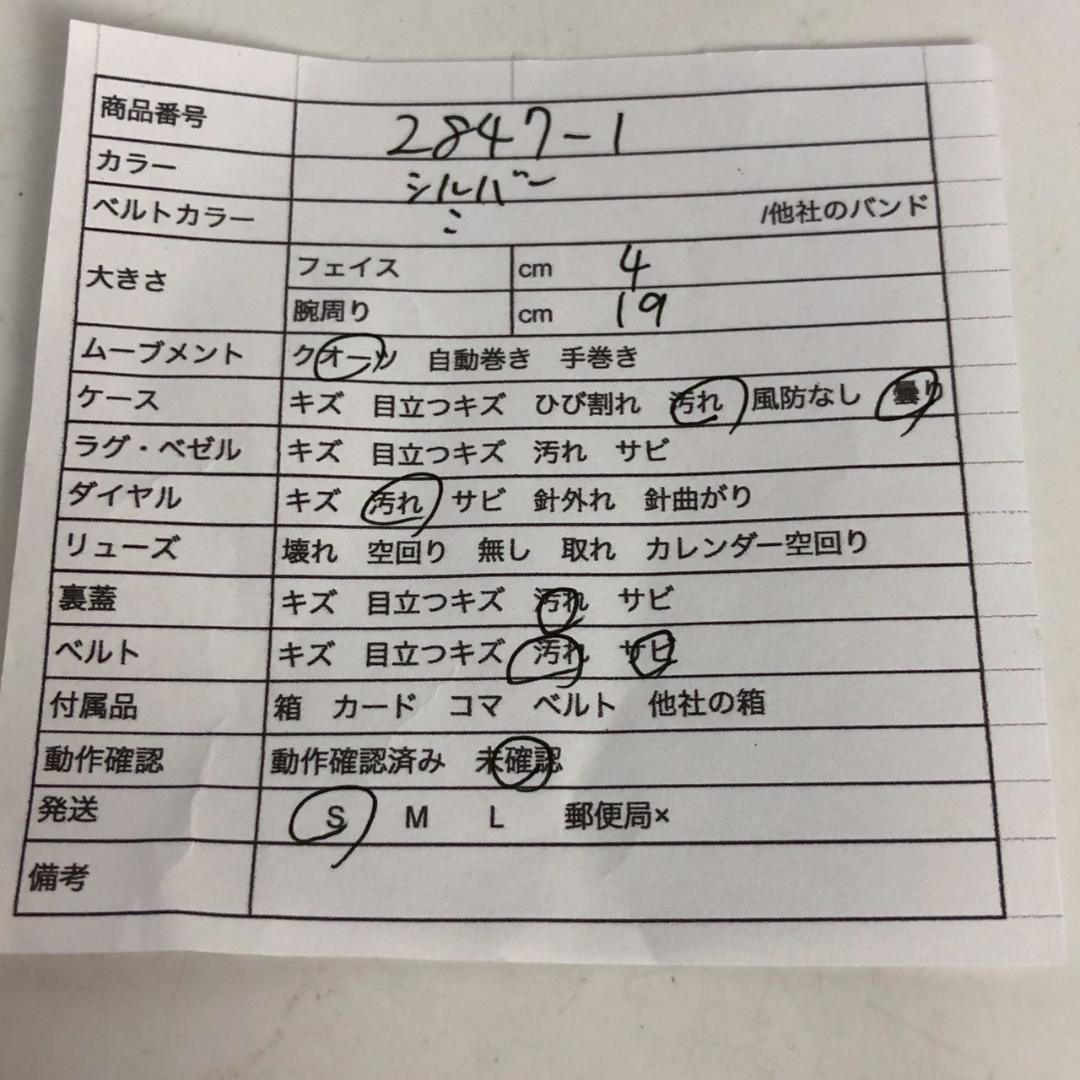 商品番号 2847-1
カラー シルバー
ベルトカラー 〃 /他社のバンド
大きさ フェイス cm 4
腕周り cm 19
ムーブメント クオーツ 自動巻き 手巻き
ケース キズ 目立つキズ ひび割れ 汚れ 風防なし 曇り
ラグ・ベゼル キズ 目立つキズ 汚れ サビ
ダイヤル キズ 汚れ サビ 針外れ 針曲がり
リューズ 壊れ 空回り 無し 取れ カレンダー空回り
裏蓋 キズ 目立つキズ 汚れ サビ
ベルト キズ 目立つキズ 汚れ サビ
付属品 箱 カード コマ ベルト 他社の箱
動作確認 動作確認済み 未確認
発送 S M L 郵便局×
備考